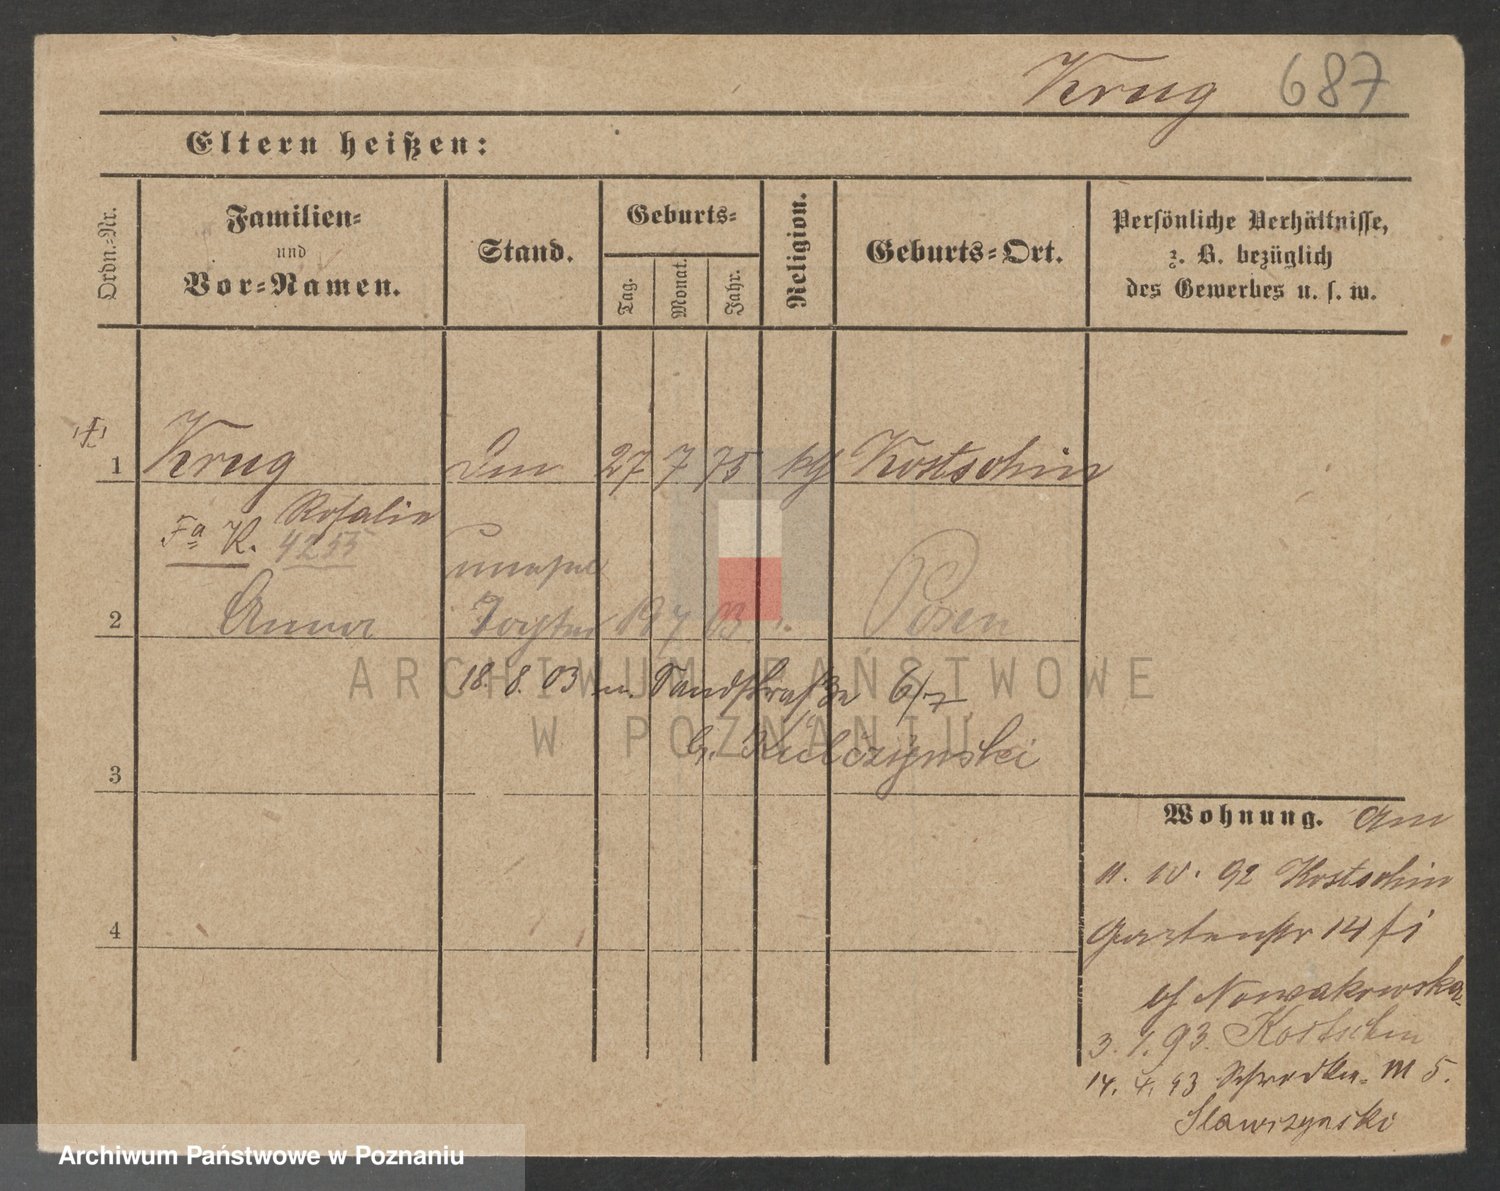 Krug 687
Eltern heißen:
Ordn.-Nr.
Familien-
und
Vor-Namen.
Stand.
Geburts-
Tag.
Monat.
Jahr.
Religion.
Geburts-Ort.
Persönliche Verhältnisse,
z. B. bezüglich
des Gewerbes u. s. w.
1 Krug 27 7 75 kth Kostschin
Rosalie
Fa K. 4255
unehel
2 Anna Tochter 19 7 03 Posen
18. 8. 03 n. Sandstraße 6/7
b. Kulczynski
3
Wohnung. Am
11. IV. 92 Kostschin
4
Gartenstr 14
bf Nowakowska
3. 1. 93. Kostschin
14. 4. 93 Schrodka M 5.
Slawczynski
ARCHIWUM PAŃSTWOWE
W POZNANIU
Archiwum Państwowe w Poznaniu